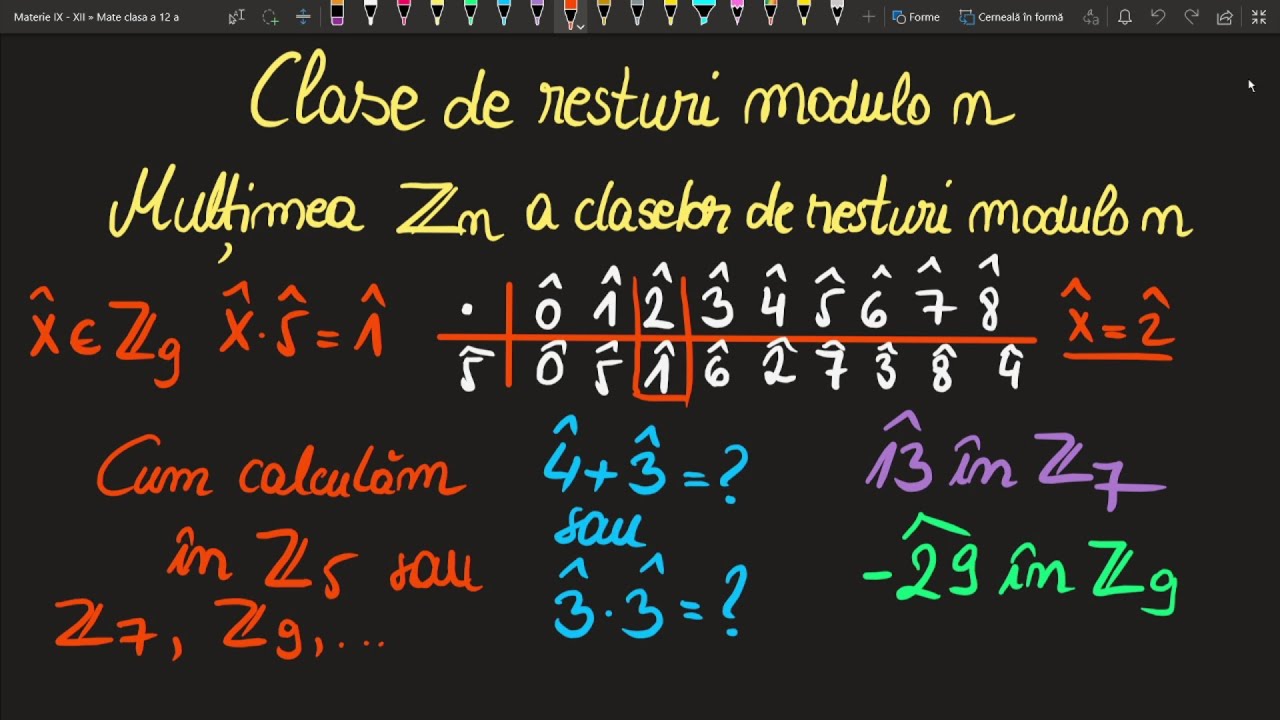 Materie IX - XII » Mate clasa a 12 a
Forme
Cerneală în formă
Clase de resturi modulo n
Mulțimea ℤn a claselor de resturi modulo n
x̂ ∈ ℤ9 x̂ · 5̂ = 1̂
· 0̂ 1̂ 2̂ 3̂ 4̂ 5̂ 6̂ 7̂ 8̂
5̂ 0̂ 5̂ 1̂ 6̂ 2̂ 7̂ 3̂ 8̂ 4̂
x̂ = 2̂
Cum calculăm
în ℤ5 sau
ℤ7, ℤ9, ...
4̂ + 3̂ = ?
sau
3̂ · 3̂ = ?
1̂3 în ℤ7
-2̂9 în ℤ9